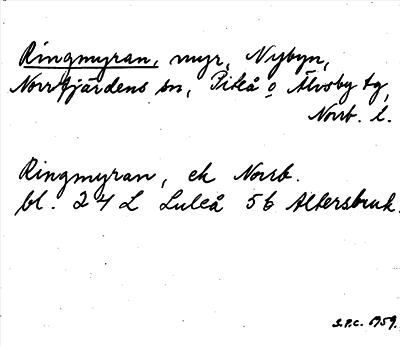 Ringmyran, myr, Nybyn,
Norrfjärdens sn, Piteå o Älvsby tg,
Norrb. l.
Ringmyran, ek Norrb.
bl. 24 L Luleå 56 Altersbruk.
S.P.C. 1959.